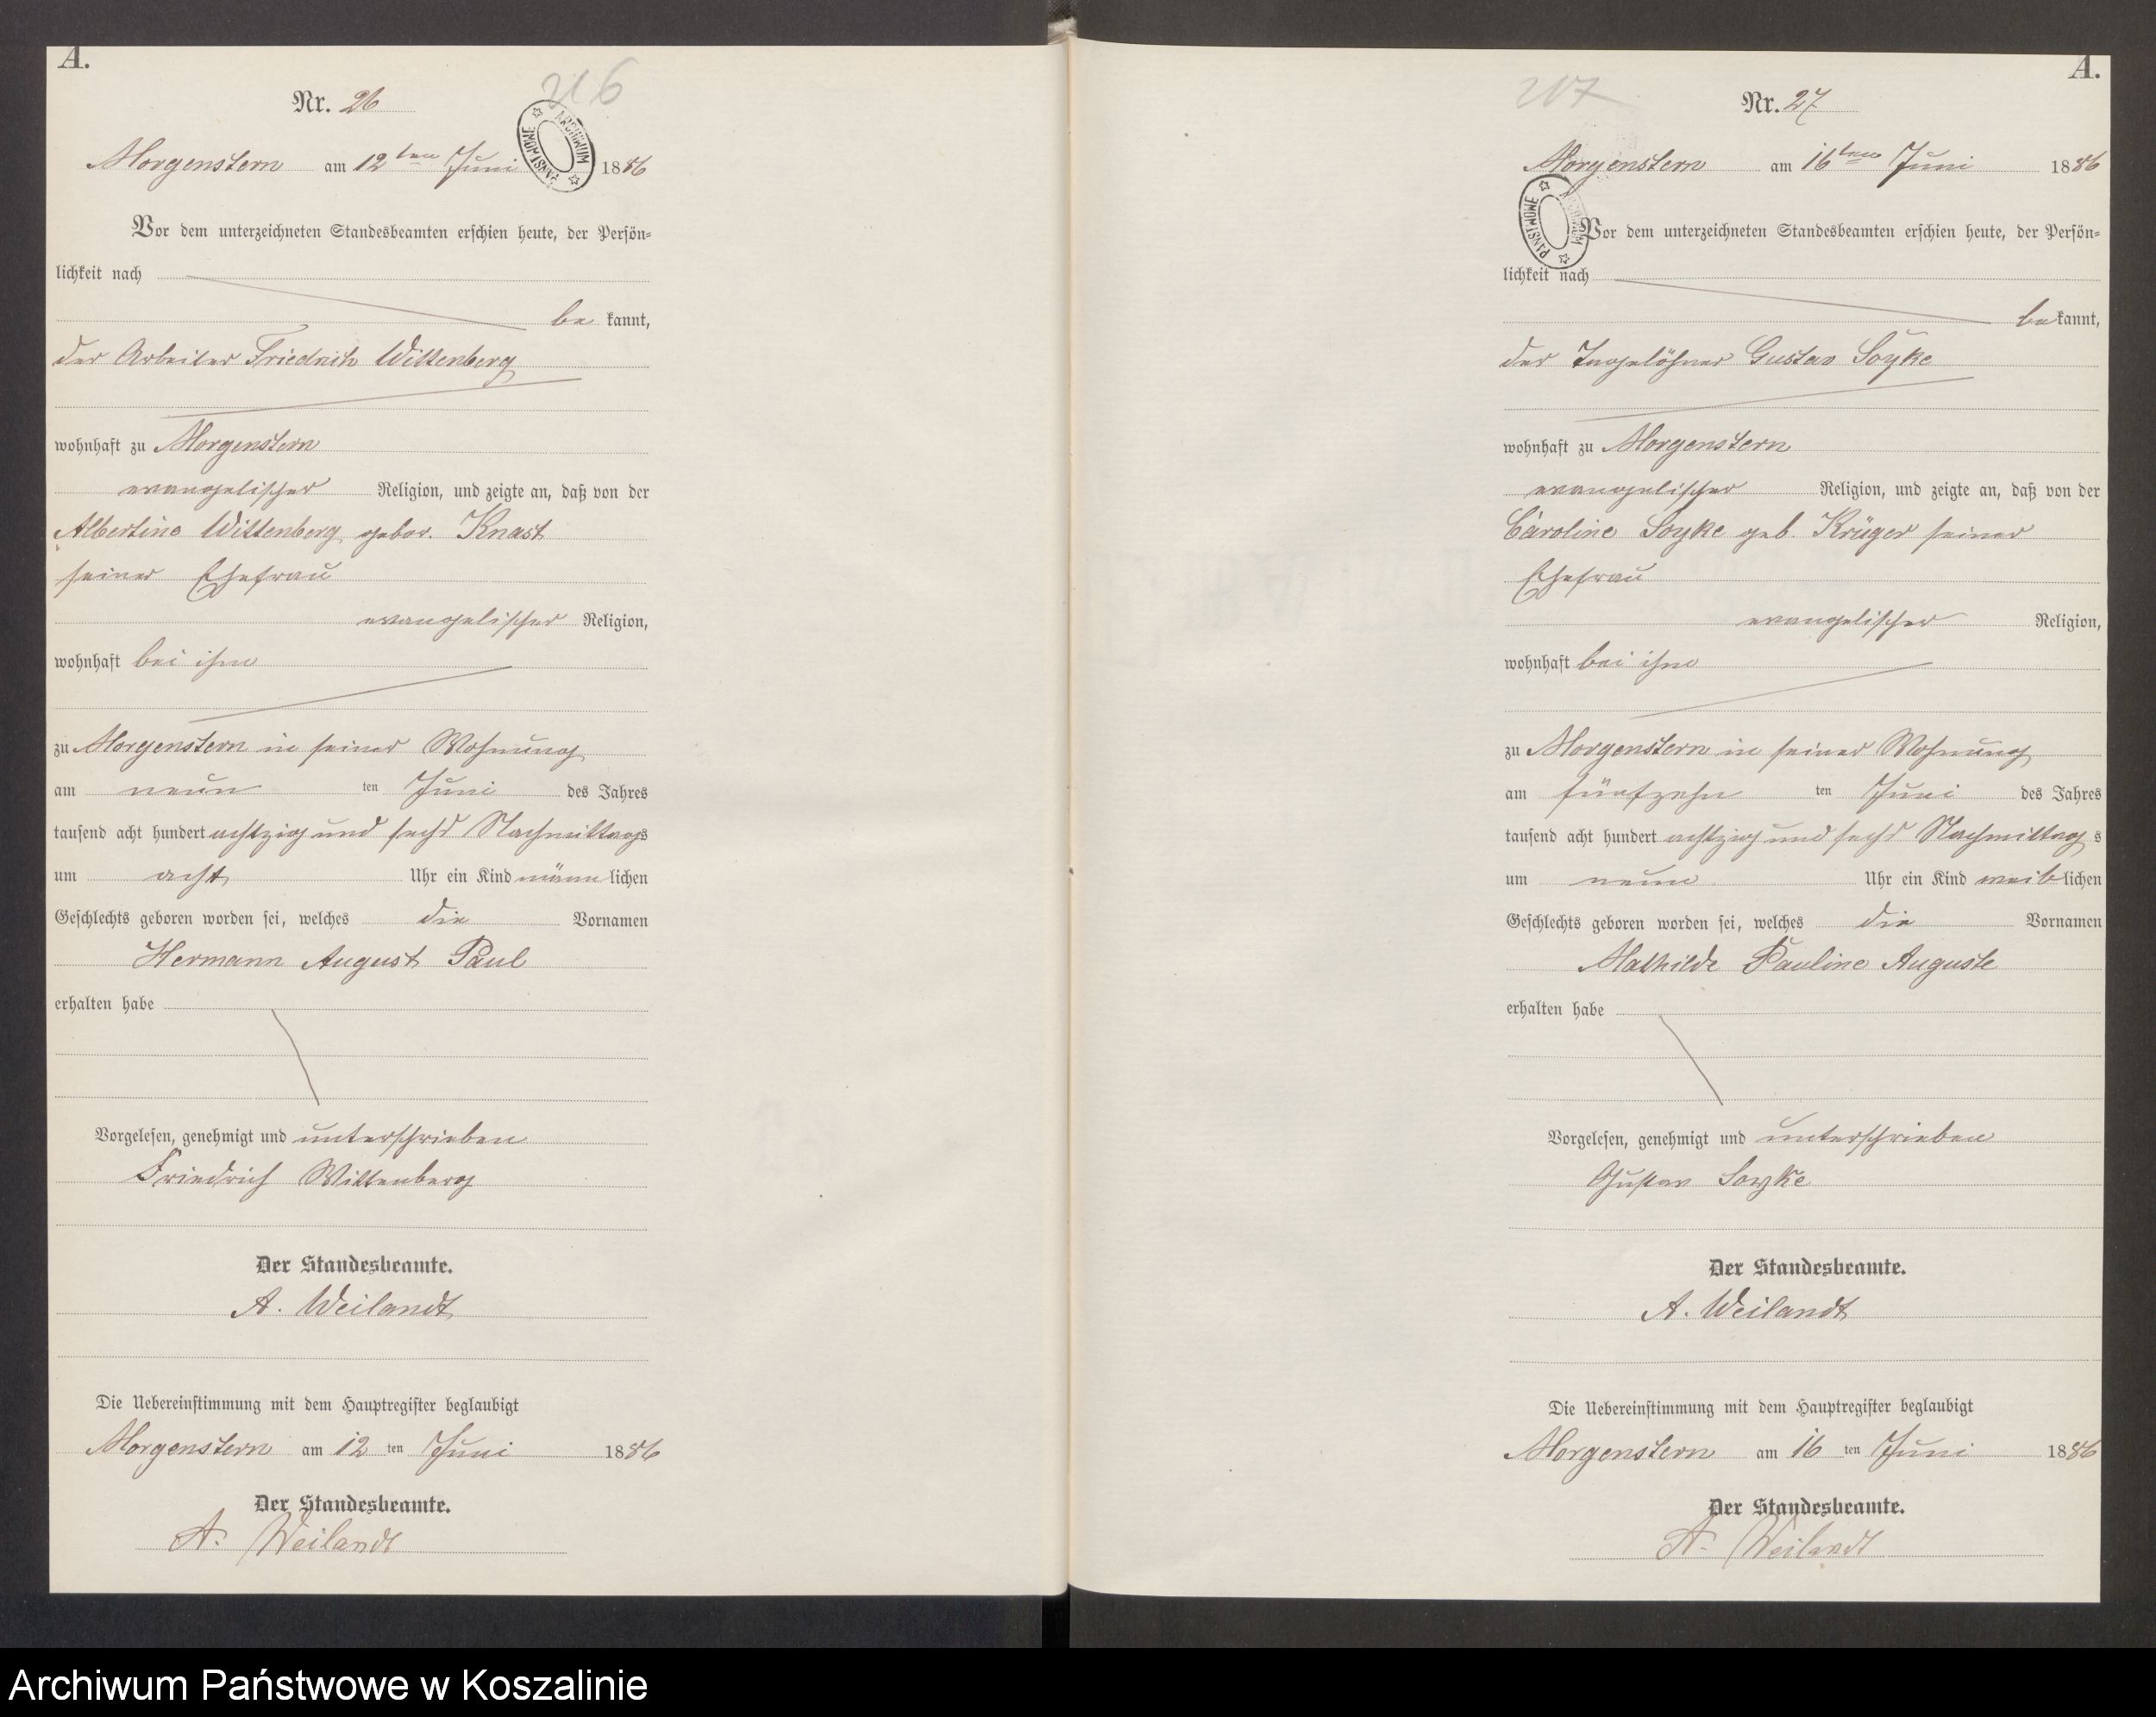 A.
Nr. 26
216
ARCHIWUM PAŃSTWOWE
Morgenstern am 12ten Juni 1886
Vor dem unterzeichneten Standesbeamten erschien heute, der Persön-
lichkeit nach
be kannt,
der Arbeiter Friedrich Wittenberg
wohnhaft zu Morgenstern
evangelischer Religion, und zeigte an, daß von der
Albertine Wittenberg gebor. Knast
seiner Ehefrau
evangelischer Religion,
wohnhaft bei ihm
zu Morgenstern in seiner Wohnung
am neun ten Juni des Jahres
tausend acht hundert achtzig und sechs Nachmittags
um acht Uhr ein Kind männ lichen
Geschlechts geboren worden sei, welches die Vornamen
Hermann August Paul
erhalten habe
Vorgelesen, genehmigt und unterschrieben
Friedrich Wittenberg
Der Standesbeamte.
A. Weilandt
Die Uebereinstimmung mit dem Hauptregister beglaubigt
Morgenstern am 12 ten Juni 1886
Der Standesbeamte.
A. Weilandt
A.
217
Nr. 27
Morgenstern am 16ten Juni 1886
ARCHIWUM PAŃSTWOWE
Vor dem unterzeichneten Standesbeamten erschien heute, der Persön-
lichkeit nach
be kannt,
der Tagelöhner Gustav Soyke
wohnhaft zu Morgenstern
evangelischer Religion, und zeigte an, daß von der
Caroline Soyke geb. Krüger seiner
Ehefrau
evangelischer Religion,
wohnhaft bei ihm
zu Morgenstern in seiner Wohnung
am fünfzehn ten Juni des Jahres
tausend acht hundert achtzig und sechs Nachmittag s
um neun Uhr ein Kind weib lichen
Geschlechts geboren worden sei, welches die Vornamen
Mathilde Pauline Auguste
erhalten habe
Vorgelesen, genehmigt und unterschrieben
Gustav Soyke
Der Standesbeamte.
A. Weilandt
Die Uebereinstimmung mit dem Hauptregister beglaubigt
Morgenstern am 16 ten Juni 1886
Der Standesbeamte.
A. Weilandt
Archiwum Państwowe w Koszalinie